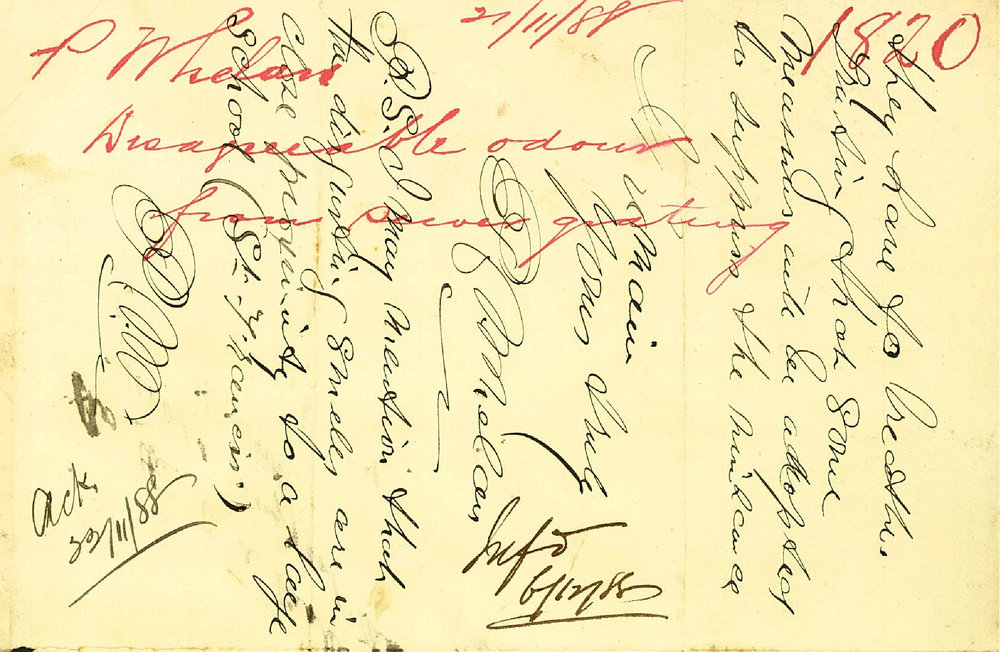 21/11/88
1820
P Whelan
Disagreeable odour
from sewer grating
they have to breathe.
Trusting that some
measures will be adopted
to suppress the nuisance
I remain
Yours truly
P Whelan
P.S. I may mention that
the disgusting smells are in
close proximity to a large
School (St. Francis)
Ack.
22/11/88
Infd
6/12/88